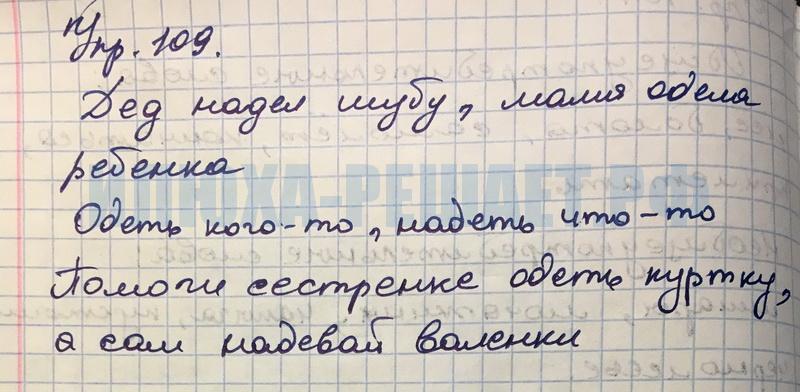 Упр. 109.
Дед надел шубу, мама одела
ребенка
ИЛЮХА-РЕШАЕТ.РФ
Одеть кого-то, надеть что-то
Помоги сестренке одеть куртку,
а сам надевай валенки